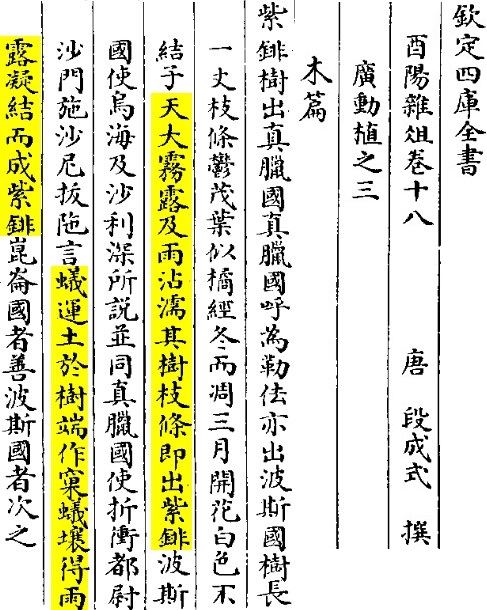 欽定四庫全書
酉陽雜俎卷十八 唐 段成式 撰
廣動植之三
木篇
紫䤵樹出真臘國真臘國呼為勒佉亦出波斯國樹長
一丈枝條鬱茂葉似橘經冬而凋三月開花白色不
結子天大霧露及雨沾濡其樹枝條即出紫䤵波斯
國使烏海及沙利深所說並同真臘國使折衝都尉
沙門施沙尼拔陁言蟻運土於樹端作窠蟻壤得雨
露凝結而成紫䤵崑崙國者善波斯國者次之